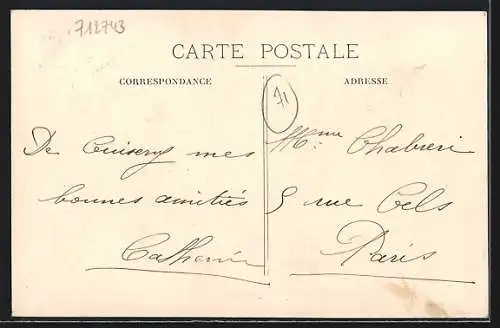 712743
CARTE POSTALE
CORRESPONDANCE
ADRESSE
71
De Cuisery mes
bonnes amitiés
Catherine
Mme Chabrieri
9 rue Cels
Paris